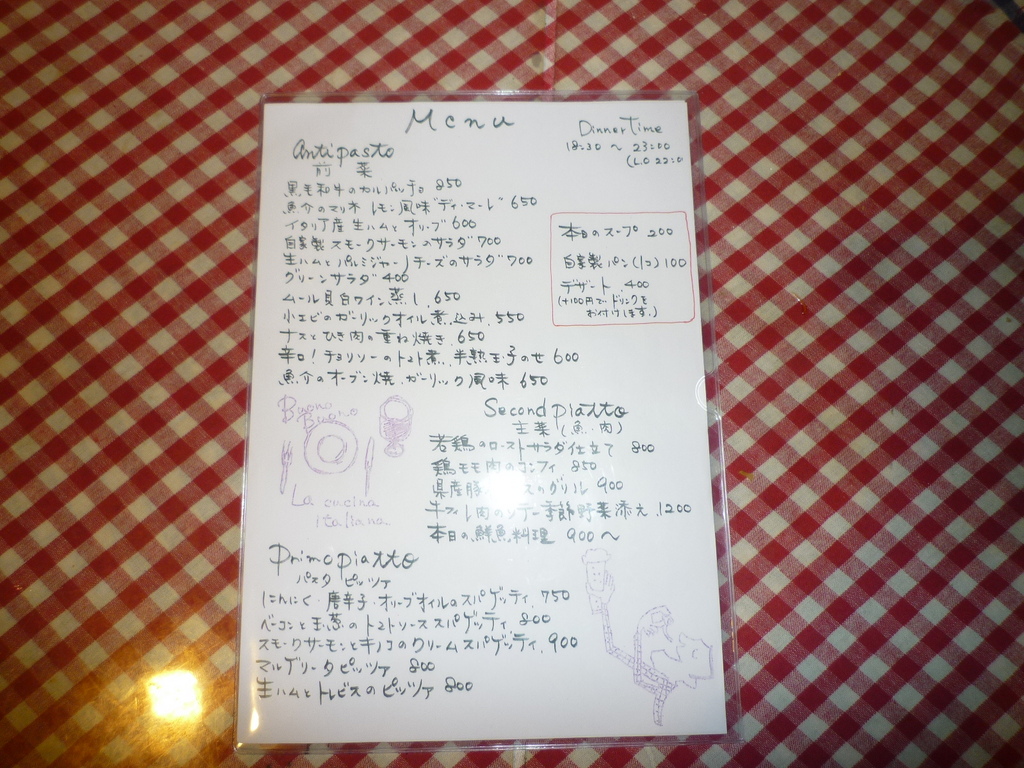 Menu
Dinner Time
18:30 ～ 23:00
(L.O 22:0
antipasto
前 菜
黒毛和牛のカルパッチョ 850
魚介のマリネ レモン風味"ディ・マーレ" 650
イタリア産 生ハムと オリーブ 600
自家製 スモークサーモンのサラダ 700
生ハムと パルミジャーノチーズのサラダ 700
グリーンサラダ 400
ムール貝白ワイン蒸し. 650
小エビのガーリックオイル煮込み. 550
ナスとひき肉の重ね焼き. 650
辛口！チョリソーのトマト煮. 半熟玉子のせ 600
魚介のオーブン焼. ガーリック風味 650
本日のスープ 200
自家製 パン(1コ) 100
デザート. 400
(+100円で ドリンクを
お付けします.)
Buono
Buono
La cucina
italiana
Second piatto
主菜 (魚・肉)
若鶏のローストサラダ仕立て 800
鶏モモ肉のコンフィ. 850
県産豚 スのグリル 900
牛フィレ肉のソテー季節野菜添え. 1200
本日の鮮魚料理 900～
Primo piatto
パスタ ピッツァ
にんにく・唐辛子・オリーブオイルのスパゲッティ. 750
ベーコンと玉葱のトマトソーススパゲッティ. 800
スモークサーモンとキノコのクリームスパゲッティ. 900
マルゲリータピッツァ 800
生ハムとトレビスのピッツァ 800